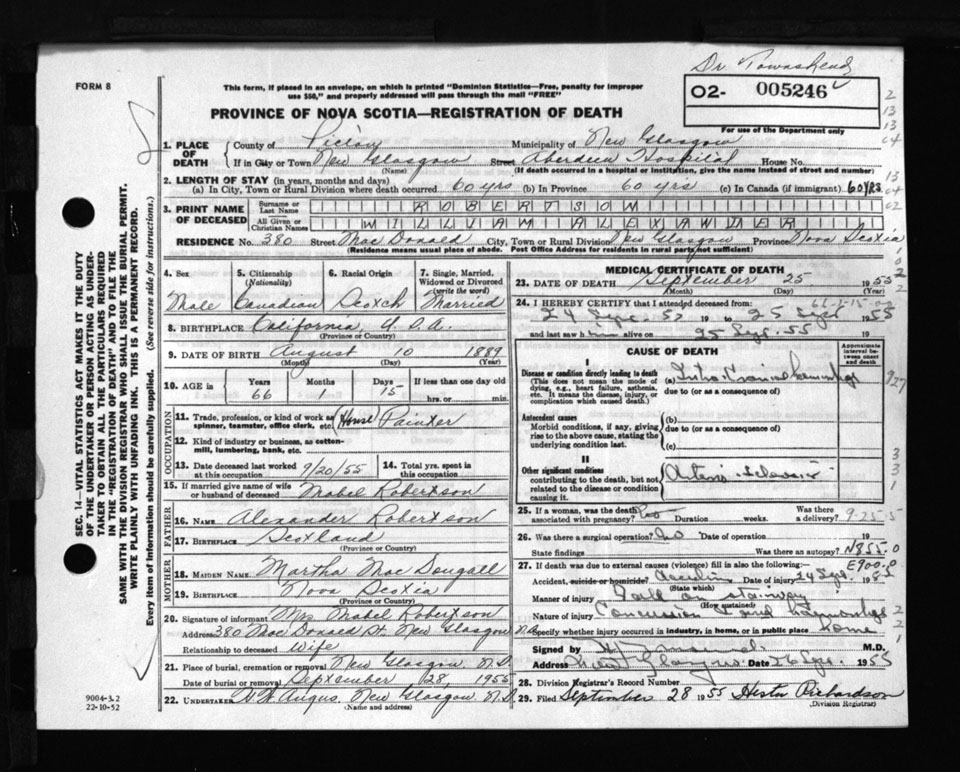 Dr. Townshend
FORM 8
This form, if placed in an envelope, on which is printed "Dominion Statistics—Free, penalty for improper
use $50," and properly addressed will pass through the mail "FREE"
02- 005246
For use of the Department only
PROVINCE OF NOVA SCOTIA—REGISTRATION OF DEATH
SEC. 14—VITAL STATISTICS ACT MAKES IT THE DUTY
OF THE UNDERTAKER OR PERSON ACTING AS UNDER-
TAKER TO OBTAIN ALL THE PARTICULARS REQUIRED
IN THE "REGISTRATION OF DEATH" AND TO FILE THE
SAME WITH THE DIVISION REGISTRAR WHO SHALL ISSUE THE BURIAL PERMIT.
WRITE PLAINLY WITH UNFADING INK. THIS IS A PERMANENT RECORD.
Every item of Information should be carefully supplied. (See reverse side for instructions.)
1. PLACE OF DEATH County of Pictou Municipality of New Glasgow
If in City or Town New Glasgow Street Aberdeen Hospital House No.
(Name) (If death occurred in a hospital or institution, give the name instead of street and number)
2. LENGTH OF STAY (in years, months and days)
(a) In City, Town or Rural Division where death occurred 60 yrs (b) In Province 60 yrs (c) In Canada (if immigrant) 60 yrs
3. PRINT NAME OF DECEASED Surname or Last Name ROBERTSON
All Given or Christian Names WILLIAM ALEXANDER
RESIDENCE No. 380 Street MacDonald City, Town or Rural Division New Glasgow Province Nova Scotia
(Residence means usual place of abode. Post Office Address for residents in rural parts not sufficient)
4. Sex 5. Citizenship (Nationality) 6. Racial Origin 7. Single, Married, Widowed or Divorced (write the word)
Male Canadian Scotch Married
8. BIRTHPLACE California, U.S.A.
(Province or Country)
9. DATE OF BIRTH August 10 1889
(Month) (Day) (Year)
10. AGE in Years Months Days If less than one day old
66 1 15 hrs. or min.
OCCUPATION
11. Trade, profession, or kind of work as spinner, teamster, office clerk, etc. House Painter
12. Kind of industry or business, as cotton-mill, lumbering, bank, etc.
13. Date deceased last worked at this occupation 9/20/55 14. Total yrs. spent in this occupation
15. If married give name of wife or husband of deceased Mabel Robertson
FATHER
16. NAME Alexander Robertson
17. BIRTHPLACE Scotland
(Province or Country)
MOTHER
18. MAIDEN NAME Martha MacDougall
19. BIRTHPLACE Nova Scotia
(Province or Country)
20. Signature of informant Mrs Mabel Robertson
Address 380 MacDonald St. New Glasgow N.S.
Relationship to deceased Wife
21. Place of burial, cremation or removal New Glasgow N.S.
Date of burial or removal September 28 1955
22. UNDERTAKER W.W. Angus, New Glasgow N.S.
(Name and address)
9004-3.2
22-10-52
MEDICAL CERTIFICATE OF DEATH
23. DATE OF DEATH September 25 1955
(Month) (Day) (Year)
24. I HEREBY CERTIFY that I attended deceased from:
24 Sept. 55 19 to 25 Sept 1955
and last saw him alive on 25 Sept. 55 19
CAUSE OF DEATH
Approximate interval between onset and death
I
Disease or condition directly leading to death (a) Intra-Cranial haemorrhage
(This does not mean the mode of dying, e.g., heart failure, asthenia, etc. It means the disease, injury, or complication which caused death.)
due to (or as a consequence of)
Antecedent causes (b)
Morbid conditions, if any, giving rise to the above cause, stating the underlying condition last.
due to (or as a consequence of)
(c)
II
Other significant conditions
contributing to the death, but not related to the disease or condition causing it.
Arterio-sclerosis
25. If a woman, was the death associated with pregnancy? Duration weeks. Was there a delivery? 9-25-5
26. Was there a surgical operation? No Date of operation 19
State findings Was there an autopsy? N855.0
27. If death was due to external causes (violence) fill in also the following: E900.0
Accident, suicide or homicide? Accident Date of injury 24 Sept. 1955
(State which)
Manner of injury Fall on stairway
(How sustained)
Nature of injury Concussion and haemorrhage
Specify whether injury occurred in industry, in home, or in public place home
Signed by M.D.
Address New Glasgow Date 26 Sept. 1955
28. Division Registrar's Record Number
29. Filed September 28 1955 Hester Richardson
(Division Registrar)